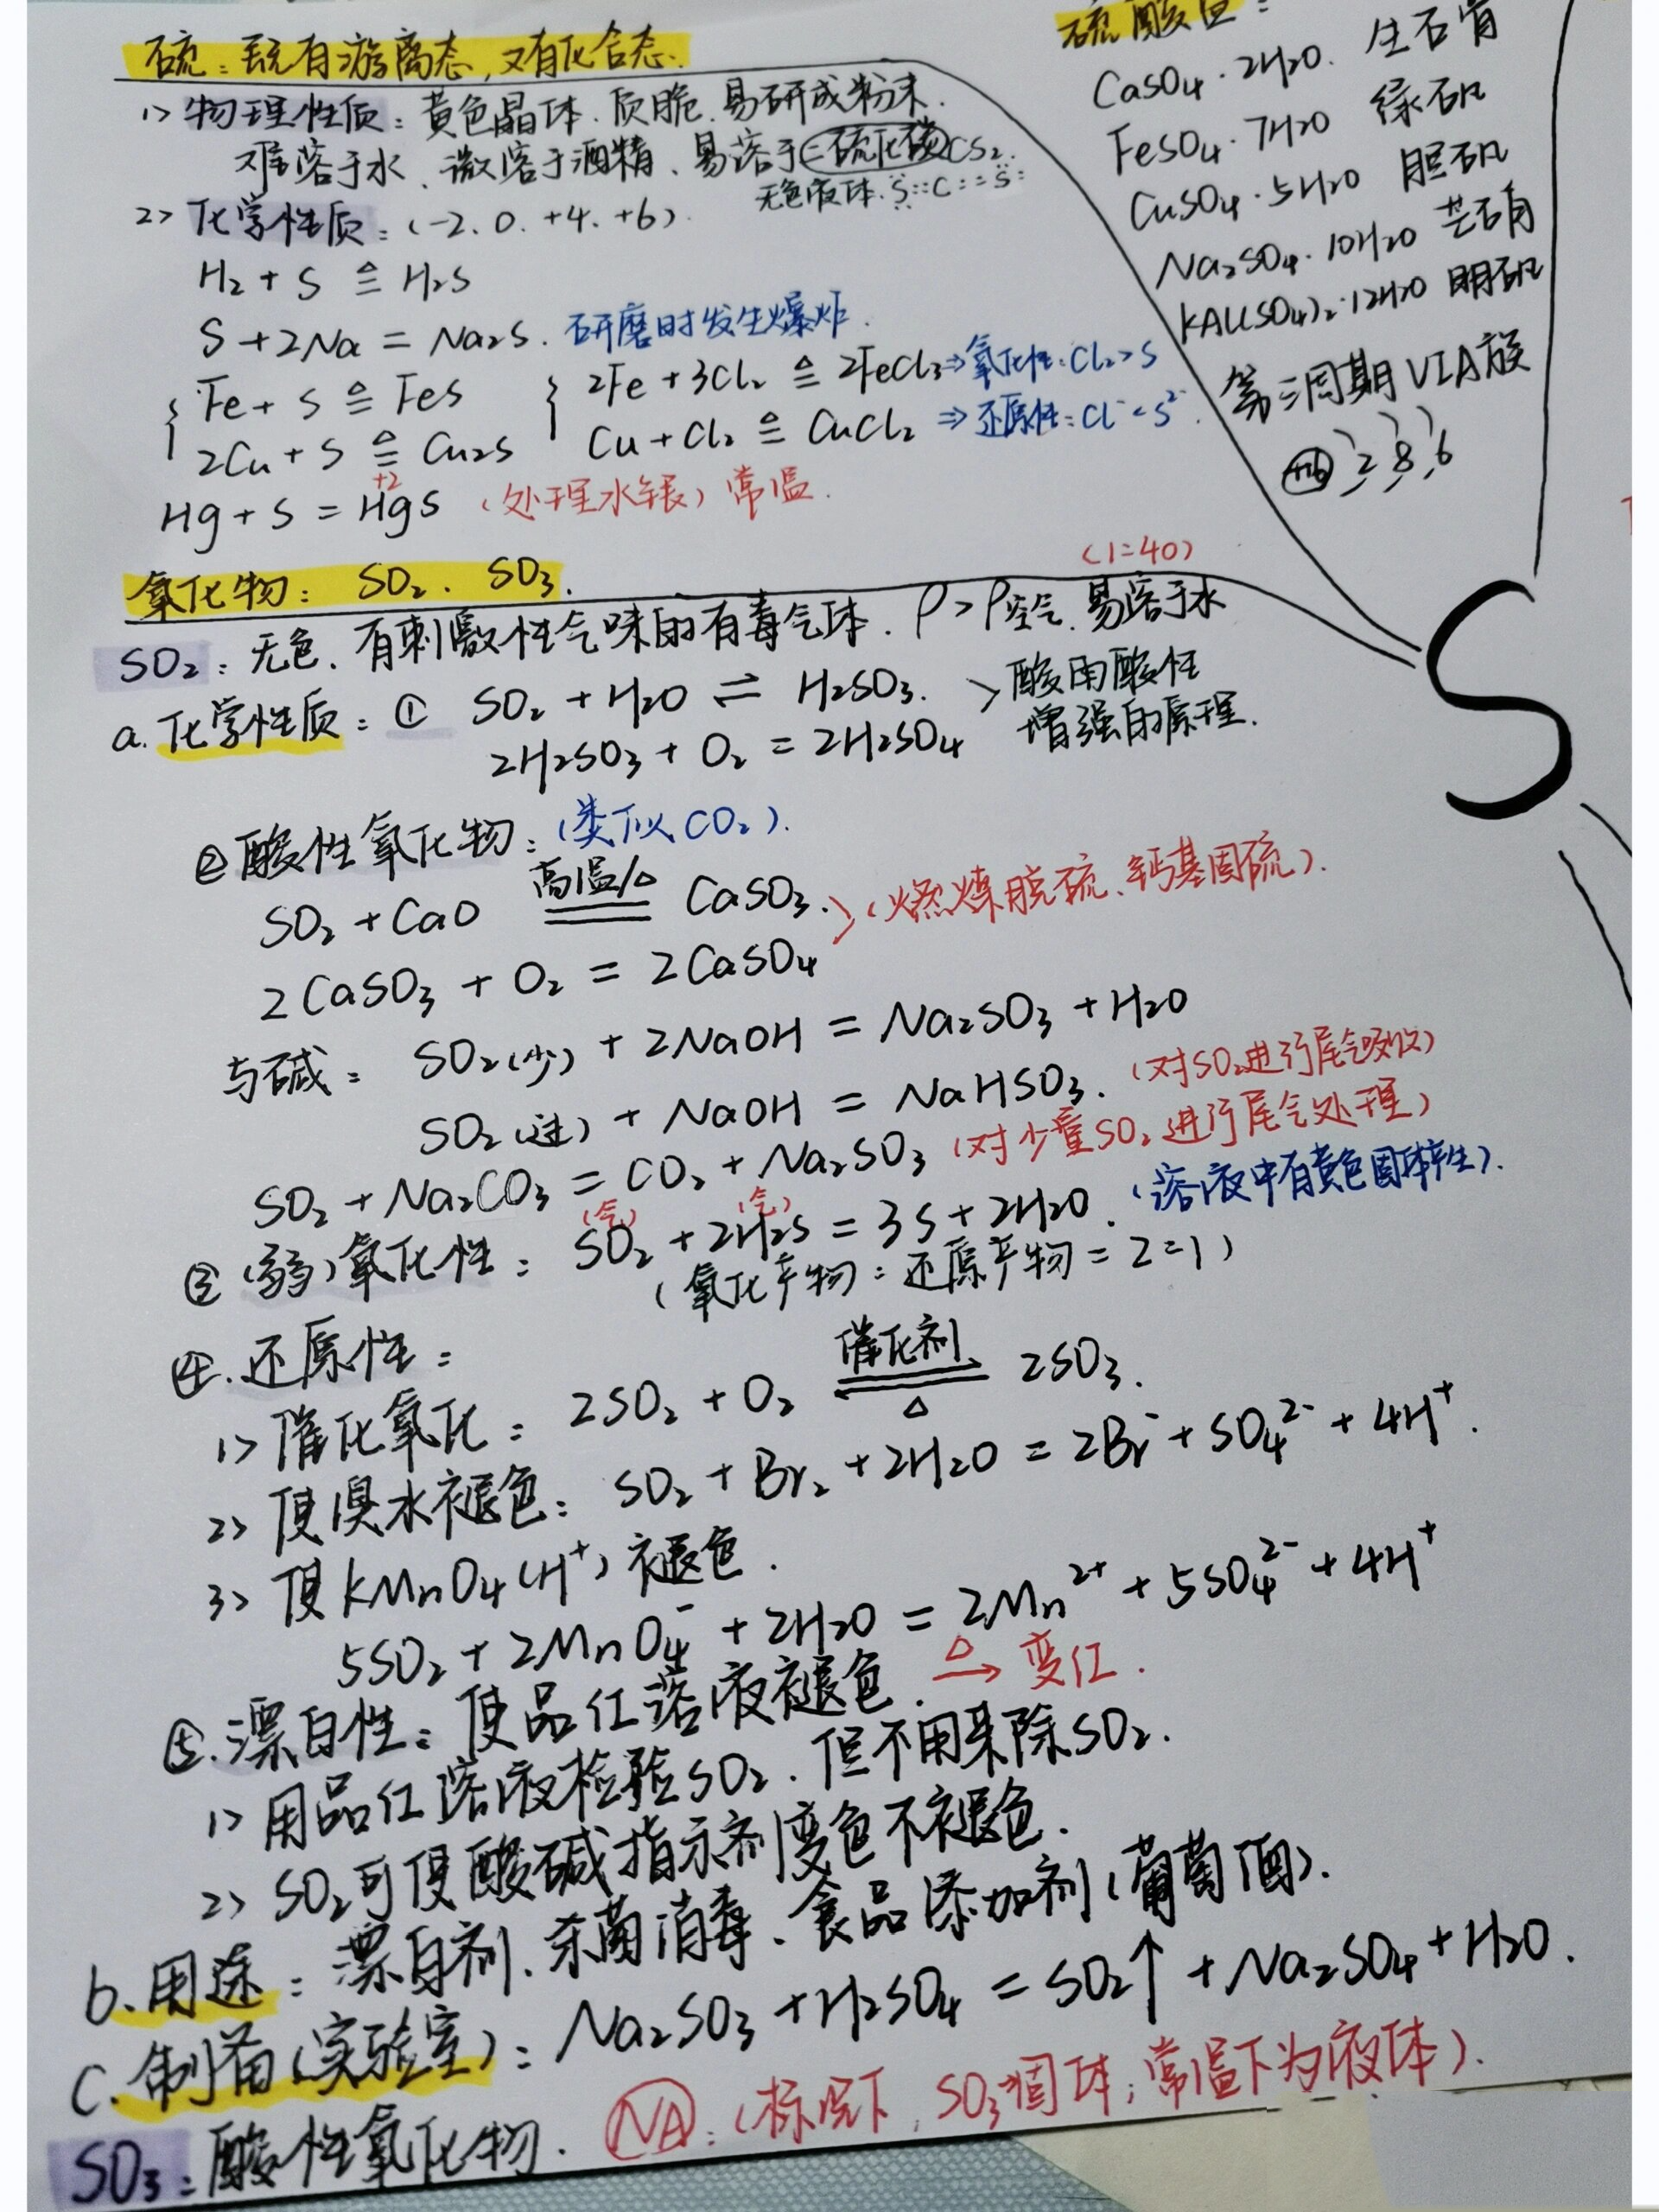 硫：既有游离态，又有化合态.
1> 物理性质：黄色晶体.质脆.易研成粉末.
难溶于水、微溶于酒精、易溶于二硫化碳CS₂.
无色液体.S::C::S
2> 化学性质：(-2、0、+4、+6).
H₂ + S ≜ H₂S
S + 2Na = Na₂S. 研磨时发生爆炸.
Fe + S ≜ FeS
2Cu + S ≜ Cu₂S
2Fe + 3Cl₂ ≜ 2FeCl₃ ⇒ 氧化性：Cl₂>S
Cu + Cl₂ ≜ CuCl₂ ⇒ 还原性：Cl⁻<S²⁻.
+2
Hg + S = HgS (处理水银) 常温.
硫酸
CaSO₄·2H₂O. 生石膏
FeSO₄·7H₂O 绿矾
CuSO₄·5H₂O 胆矾
Na₂SO₄·10H₂O 芒硝
KAl(SO₄)₂·12H₂O 明矾
第三周期VIA族
+16 2 8 6
S
氧化物：SO₂、SO₃.
(1:40)
SO₂：无色、有刺激性气味的有毒气体.ρ>ρ空气.易溶于水
a.化学性质：① SO₂ + H₂O ⇌ H₂SO₃.
2H₂SO₃ + O₂ = 2H₂SO₄
> 酸雨酸性
增强的原理.
②酸性氧化物：(类似CO₂).
高温/△
SO₂ + CaO ═ CaSO₃.
2CaSO₃ + O₂ = 2CaSO₄
>(燃煤脱硫、钙基固硫).
与碱：SO₂(少) + 2NaOH = Na₂SO₃ + H₂O
SO₂(过) + NaOH = NaHSO₃. (对SO₂进行尾气吸收)
SO₂ + Na₂CO₃ = CO₂ + Na₂SO₃ (对少量SO₂进行尾气处理)
(气) (气)
③(弱)氧化性：SO₂ + 2H₂S = 3S + 2H₂O. (溶液中有黄色固体产生).
(氧化产物：还原产物 = 2:1)
④.还原性：
催化剂
1> 催化氧化：2SO₂ + O₂ ⇌ 2SO₃.
△
2> 使溴水褪色：SO₂ + Br₂ + 2H₂O = 2Br⁻ + SO₄²⁻ + 4H⁺.
3> 使KMnO₄(H⁺)褪色.
5SO₂ + 2MnO₄⁻ + 2H₂O = 2Mn²⁺ + 5SO₄²⁻ + 4H⁺
⑤.漂白性：使品红溶液褪色. △→ 变红.
1> 用品红溶液检验SO₂.但不用来除SO₂.
2> SO₂可使酸碱指示剂变色不褪色.
b.用途：漂白剂、杀菌消毒、食品添加剂(葡萄酒).
C.制备(实验室)：Na₂SO₃ + H₂SO₄ = SO₂↑ + Na₂SO₄ + H₂O.
SO₃：酸性氧化物. NA：(标况下，SO₃固体；常温下为液体).